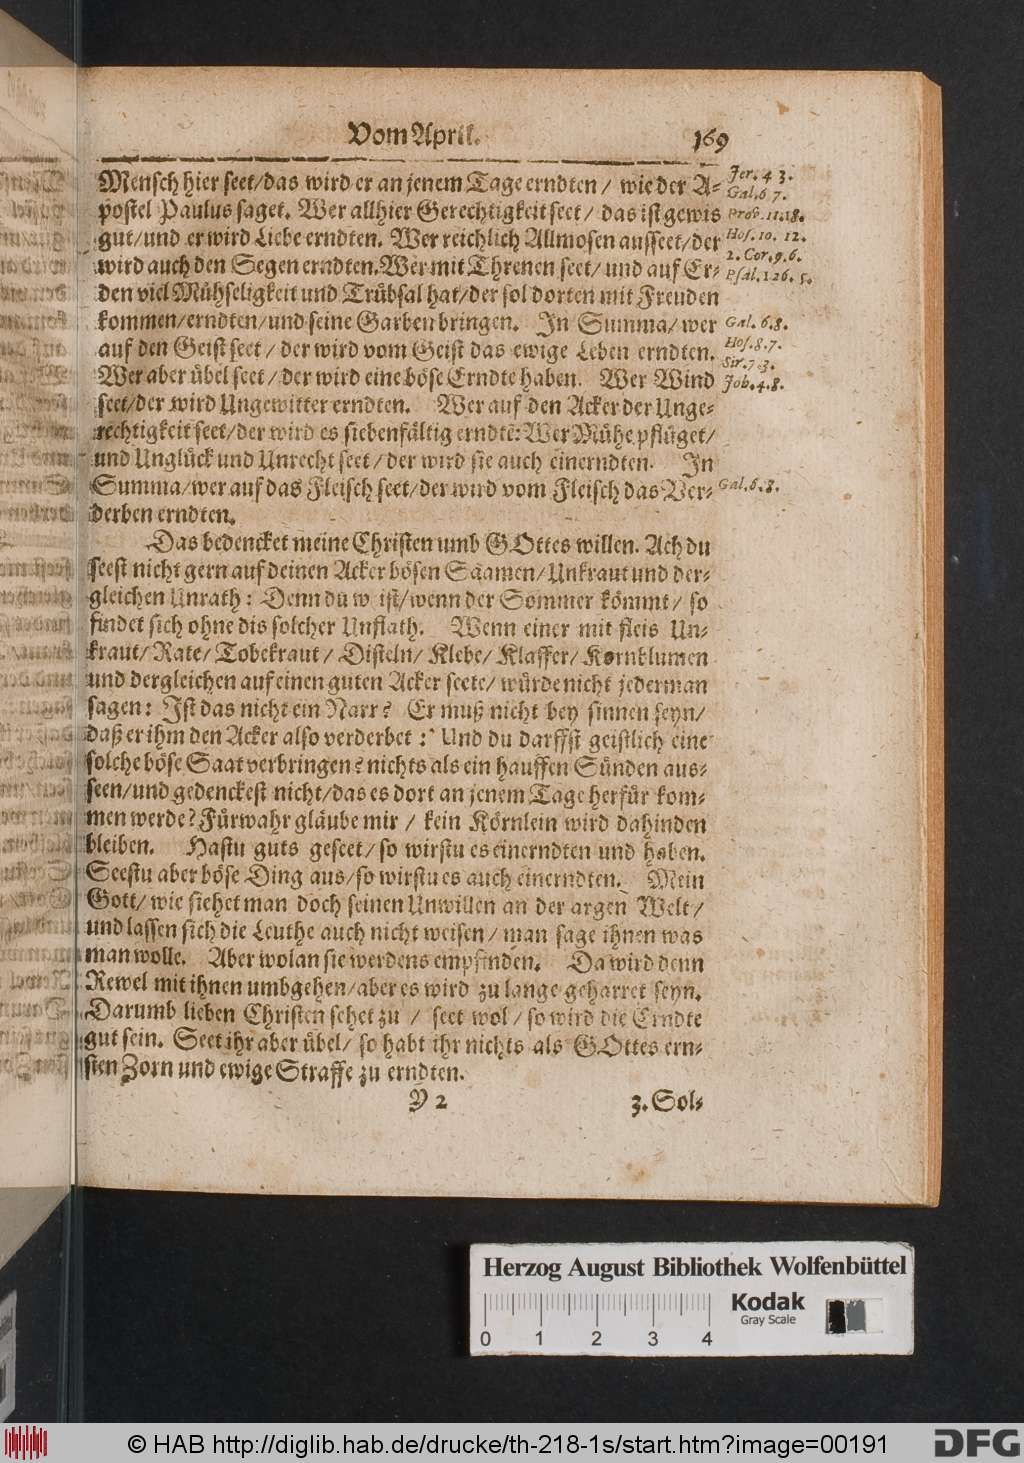 Vom April. 169
Mensch hier seet/das wird er an jenem Tage erndten / wie der A-
postel Paulus saget. Wer allhier Gerechtigkeit seet / das ist gewis
gut/und er wird Liebe erndten. Wer reichlich Allmosen ausseet/der
wird auch den Segen erndten. Wer mit Threnen seet/ und auf Er-
den viel Mühseligkeit und Trübsal hat/der sol dorten mit Freuden
kommen/erndten/und seine Garben bringen. In Summa/ wer
auf den Geist seet / der wird vom Geist das ewige Leben erndten.
Wer aber übel seet / der wird eine böse Erndte haben. Wer Wind
seet/der wird Ungewitter erndten. Wer auf den Acker der Unge-
rechtigkeit seet/der wird es siebenfältig erndtē: Wer Mühe pflüget/
und Unglück und Unrecht seet / der wird sie auch einerndten. In
Summa/wer auf das Fleisch seet/der wird vom Fleisch das Ver-
derben erndten.
Jer. 4 3.
Gal. 6 7.
Prob. 11.18.
Hos. 10. 12.
2. Cor. 9. 6.
Psal. 126. 5.
Gal. 6. 8.
Hos. 8. 7.
Sir. 7 3.
Job. 4. 8.
Gal. 6. 8.
Das bedencket meine Christen umb GOttes willen. Ach du
seest nicht gern auf deinen Acker bösen Säamen/Unkraut und der-
gleichen Unrath: Denn du w ist/wenn der Sommer kömmt/ so
findet sich ohne dis solcher Unflath. Wenn einer mit fleis Un-
kraut/ Rate/ Tobekraut / Disteln/ Klebe/ Klaffer/ Kornblumen
und dergleichen auf einen guten Acker seete/ würde nicht jederman
sagen: Ist das nicht ein Narr? Er muß nicht bey sinnen seyn/
daß er ihm den Acker also verderbet: Und du darffst geistlich eine
solche böse Saat verbringen? nichts als ein hauffen Sünden aus-
seen/und gedenckest nicht/das es dort an jenem Tage herfür kom-
men werde? Fürwahr gläube mir / kein Körnlein wird dahinden
bleiben. Hastu guts geseet/ so wirstu es einerndten und haben.
Seestu aber böse Ding aus/so wirstu es auch einerndten. Mein
Gott/ wie siehet man doch seinen Unwillen an der argen Welt/
und lassen sich die Leuthe auch nicht weisen / man sage ihnen was
man wolle. Aber wolan sie werdens empfinden. Da wird denn
Rewel mit ihnen umbgehen/aber es wird zu lange geharret seyn.
Darumb lieben Christen sehet zu / seet wol / so wird die Erndte
gut sein. Seet ihr aber übel/ so habt ihr nichts als GOttes ern-
sten Zorn und ewige Straffe zu erndten.
Y 2 3. Sol-
Herzog August Bibliothek Wolfenbüttel
Kodak
Gray Scale
0 1 2 3 4
© HAB http://diglib.hab.de/drucke/th-218-1s/start.htm?image=00191
DFG